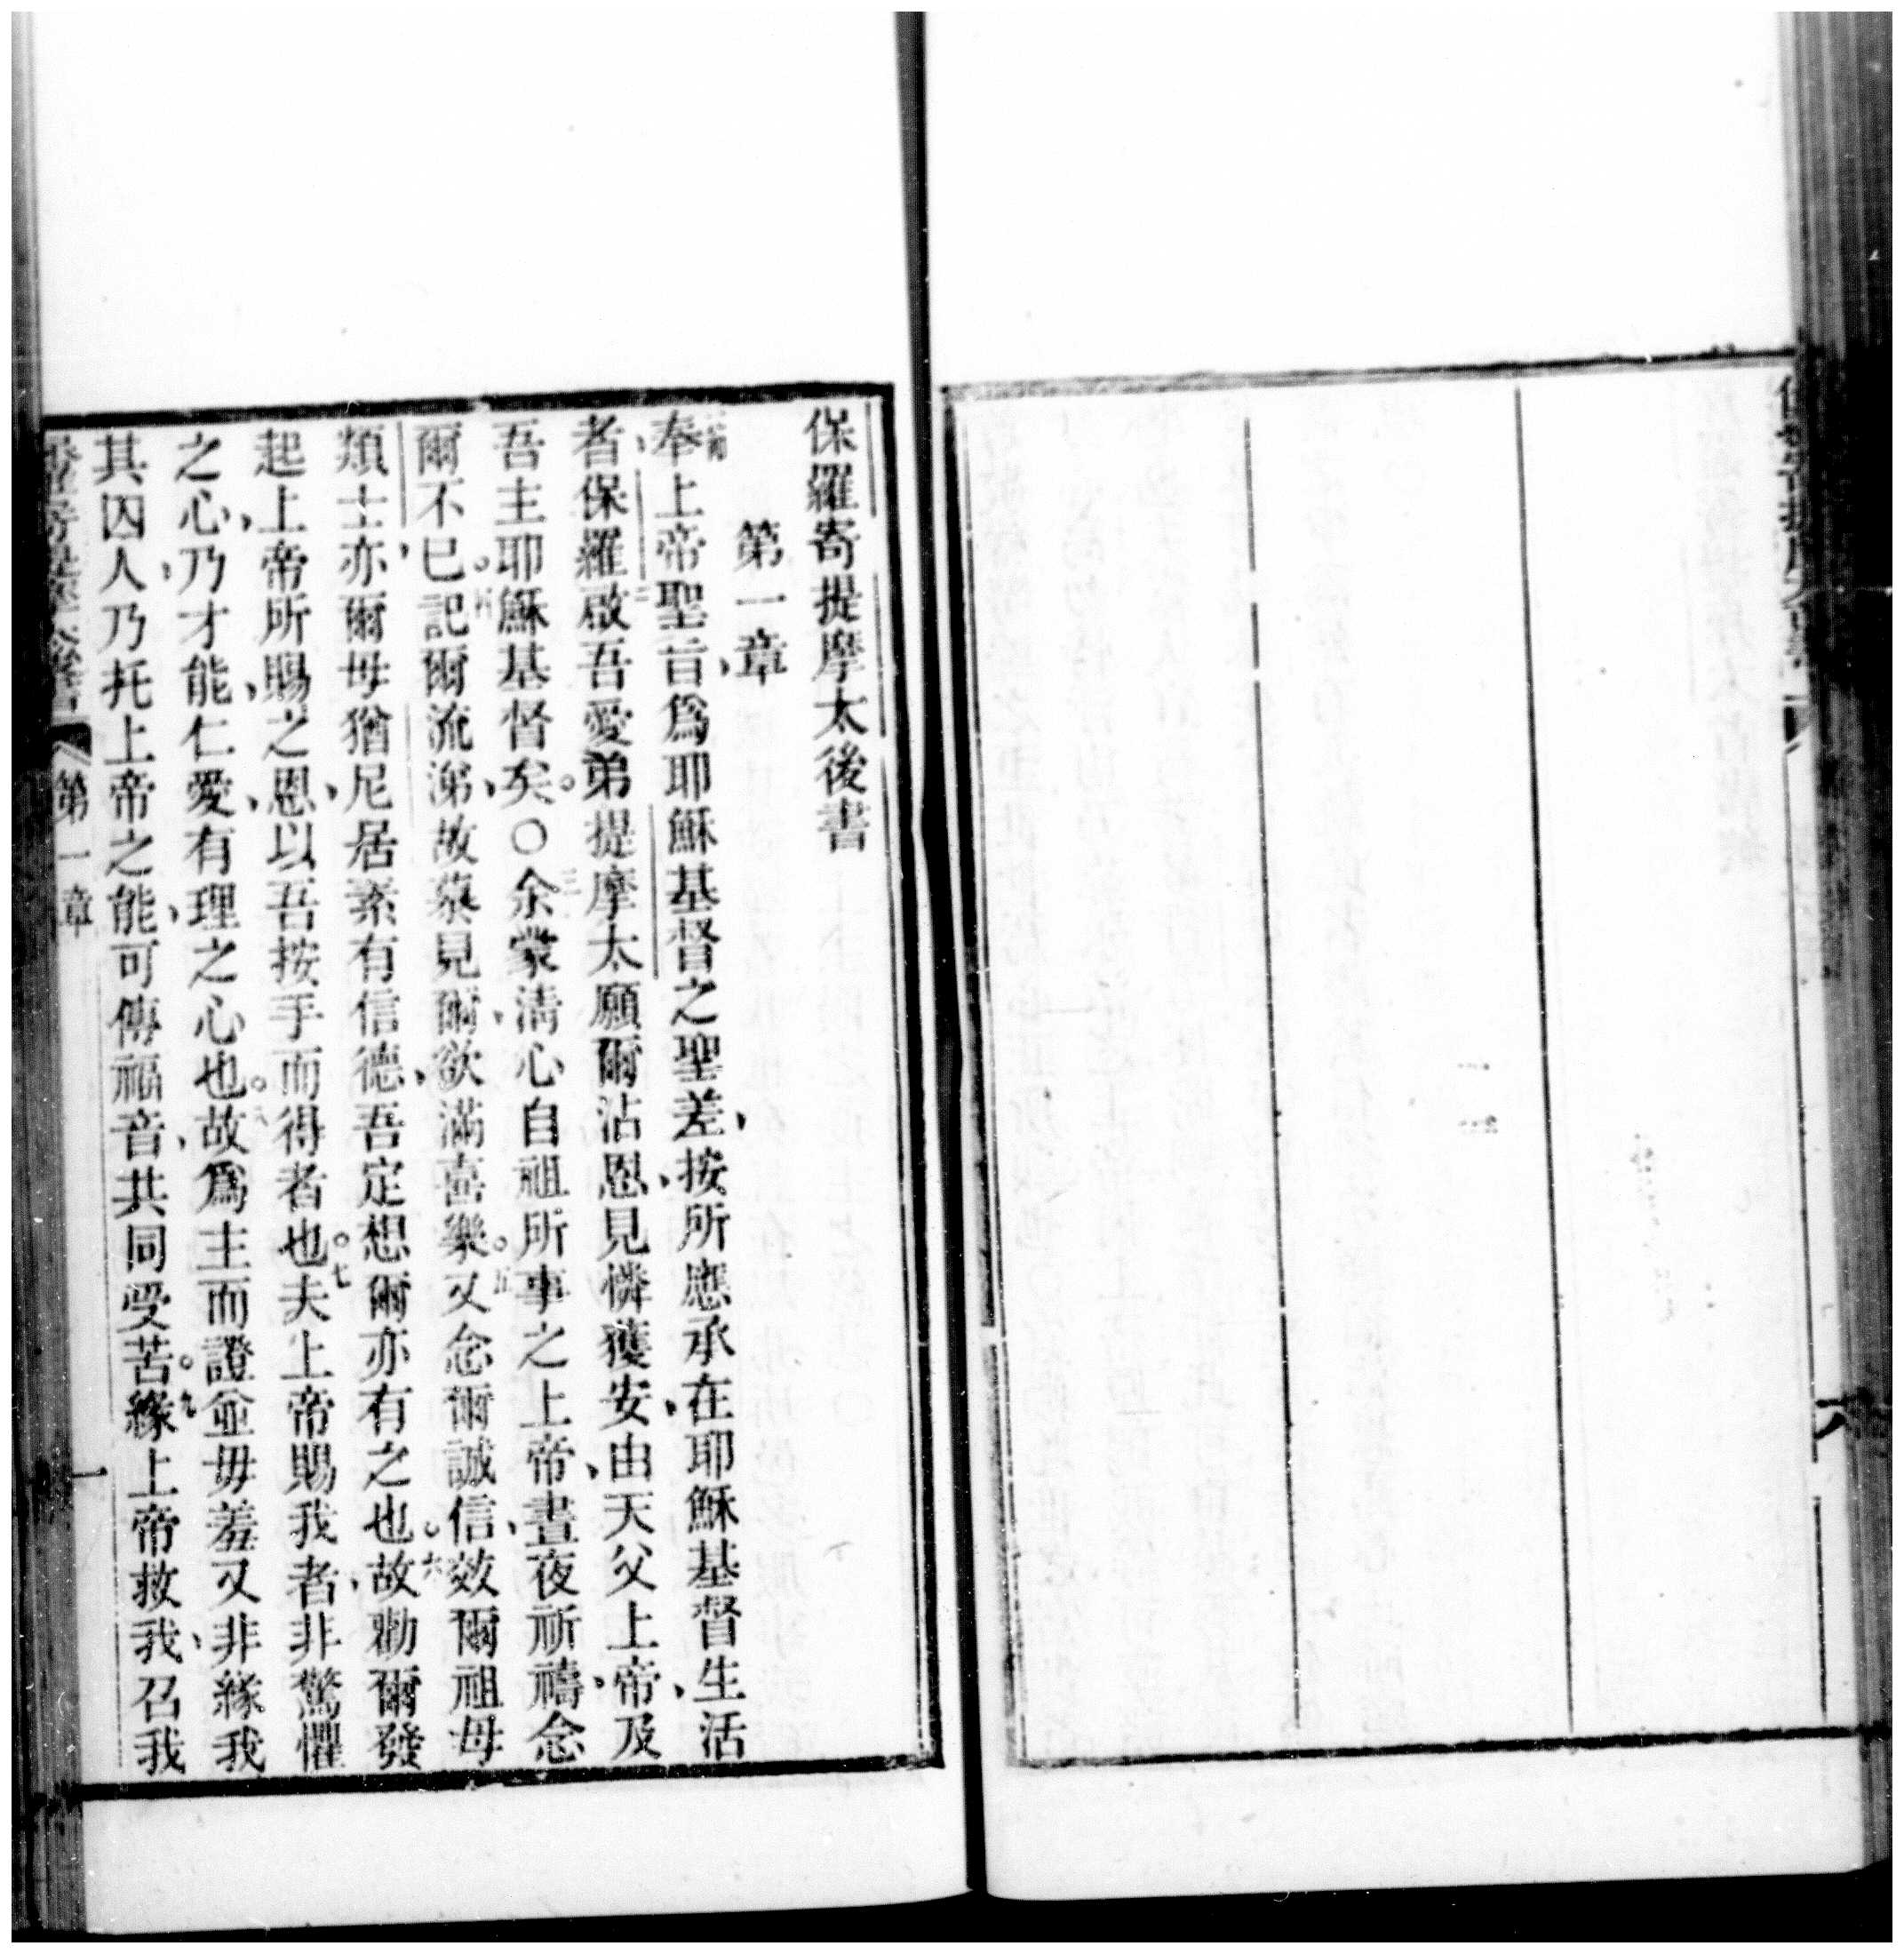 保羅寄提摩太後書
第一章
奉上帝聖旨、爲耶穌基督之聖差、按所應承在耶穌基督生活
者、保羅二啟吾愛弟提摩太願爾沾恩、見憐獲安、由天父上帝、及
吾主耶穌基督矣。〇三余蒙清心自祖所事之上帝、晝夜祈禱、念
爾不已。四記爾流涕、故慕見爾、欲滿喜樂。五又念爾誠信、效爾祖母
類士、亦爾母猶尼居素有信德、吾定想爾亦有之也。六故勸爾發
起、上帝所賜之恩、以吾按手而得者也。七夫上帝賜我者、非驚懼
之心、乃才能仁愛、有理之心也。八故爲主而證並毋羞又非緣我
其囚人、乃托上帝之能、可傳福音、共同受苦。九緣上帝救我、召我
第一章
一
六